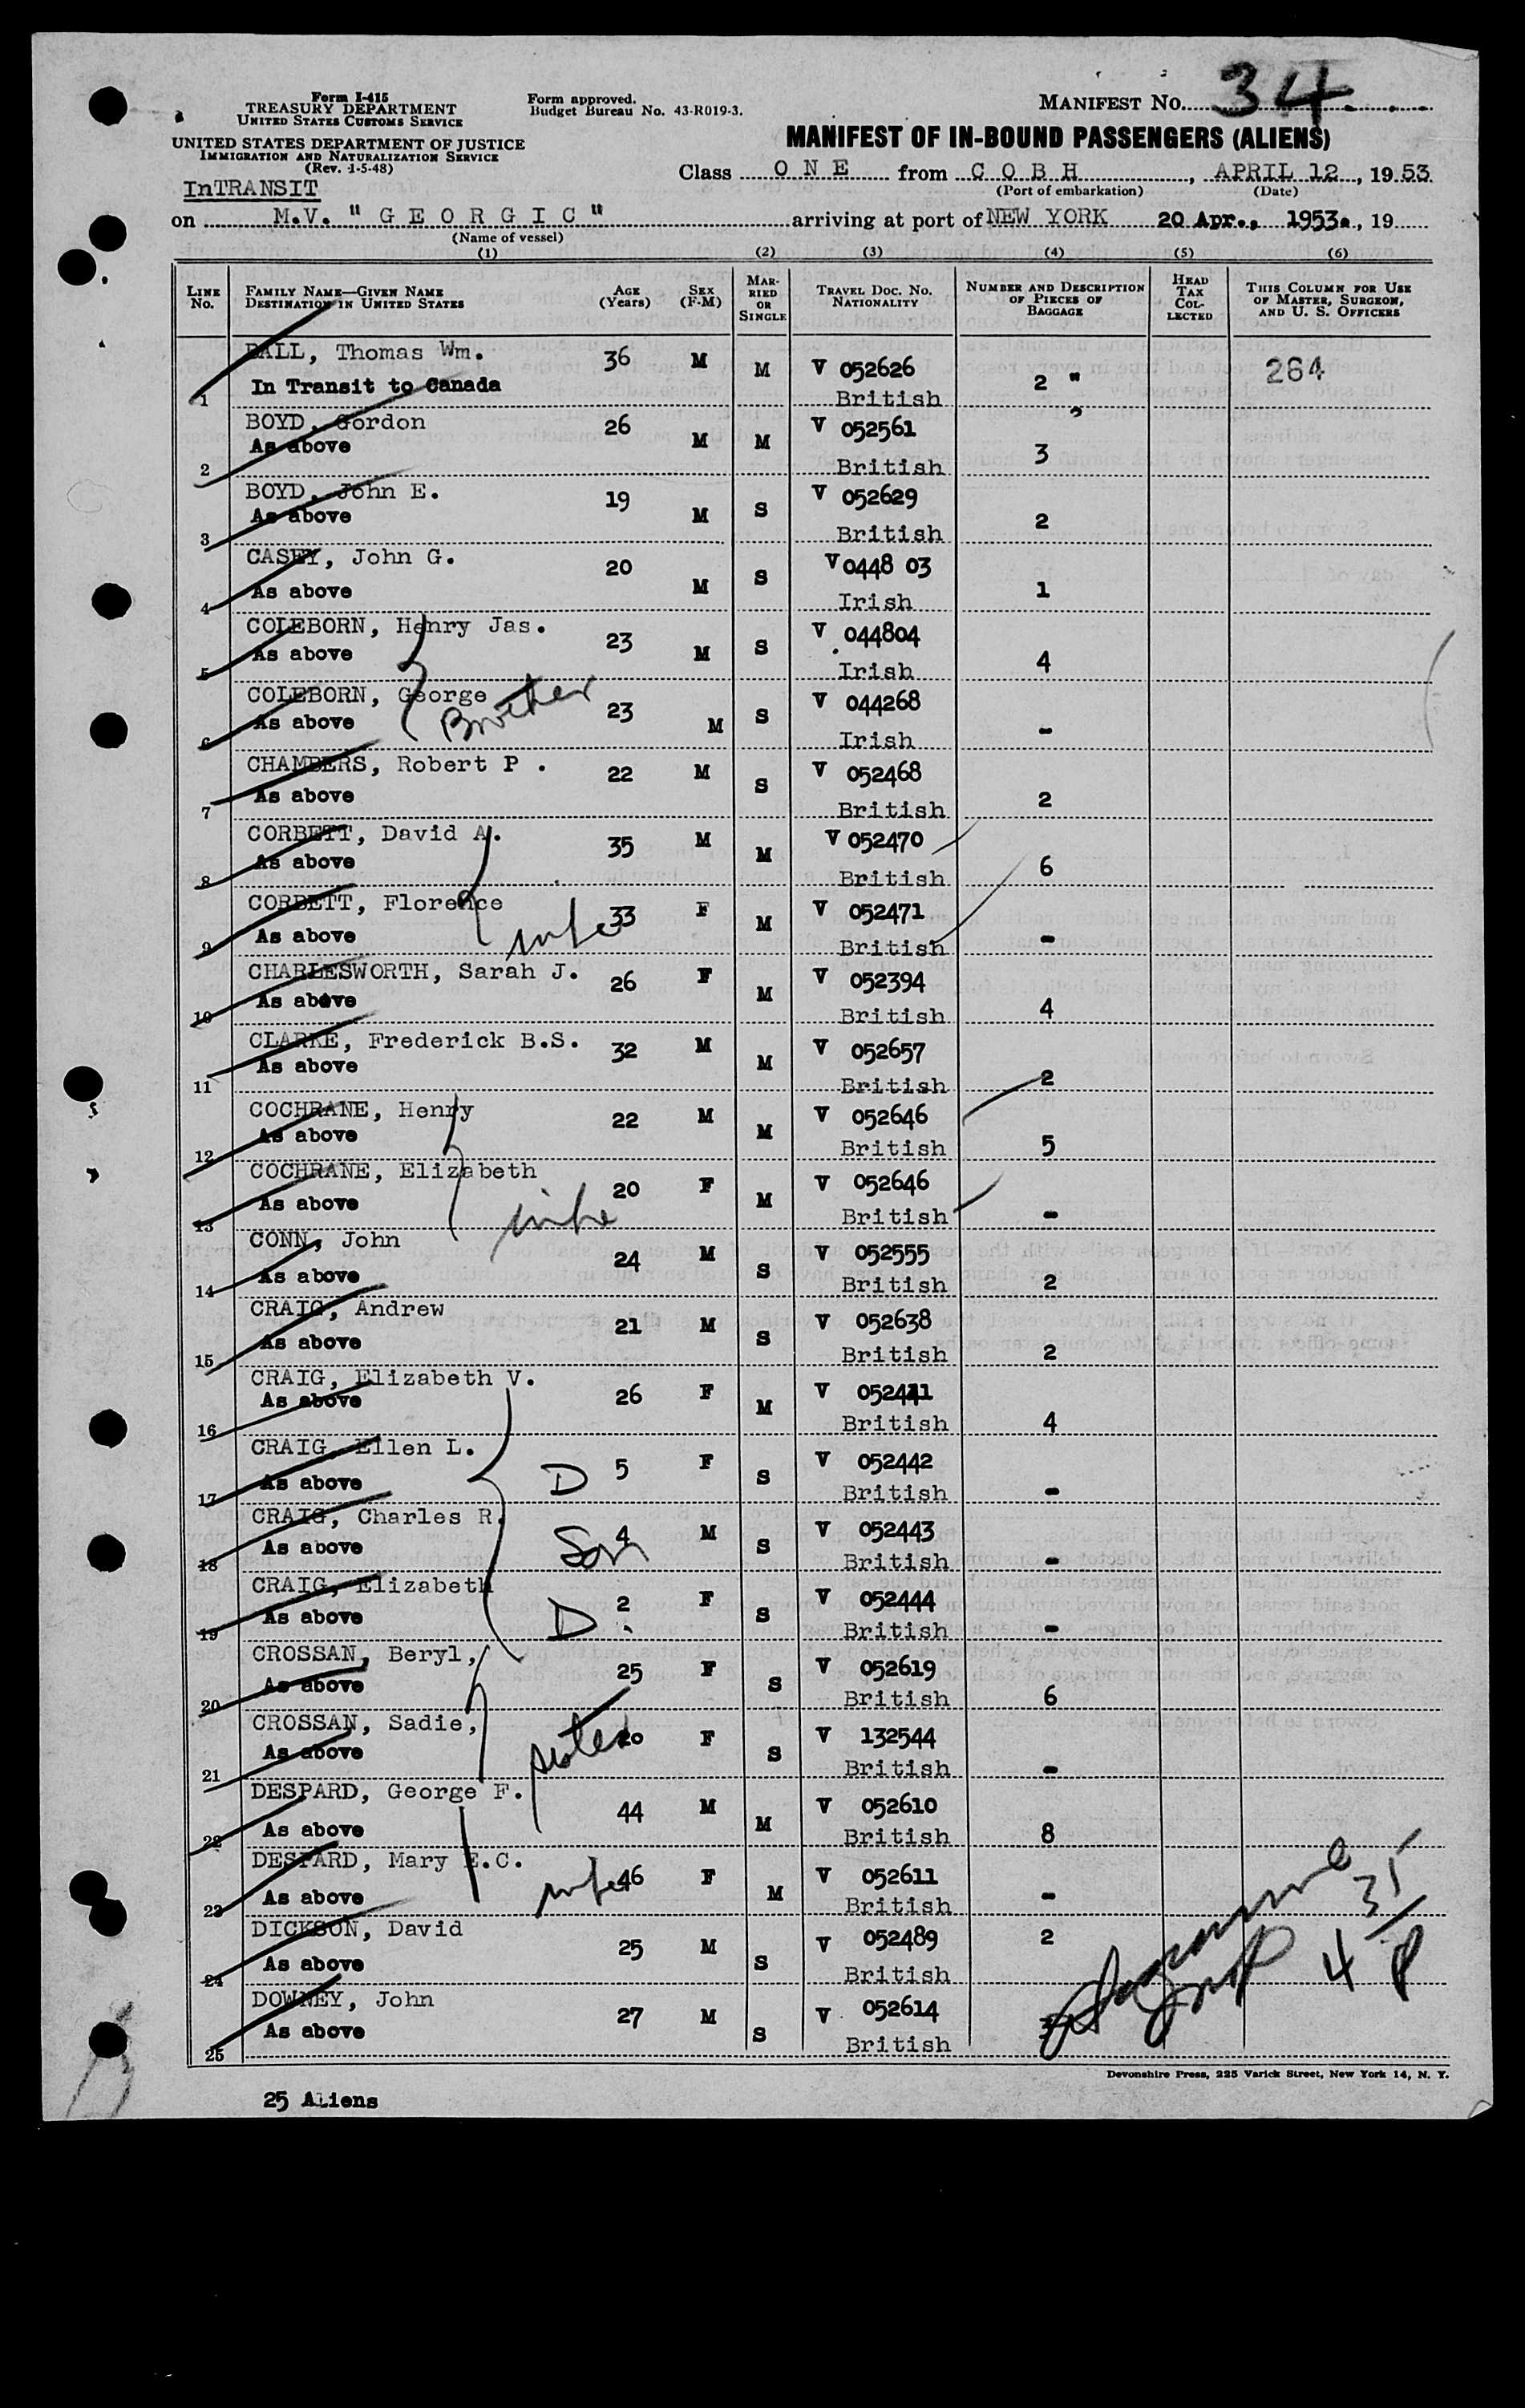 Form I-415
TREASURY DEPARTMENT
UNITED STATES CUSTOMS SERVICE
UNITED STATES DEPARTMENT OF JUSTICE
IMMIGRATION AND NATURALIZATION SERVICE
(Rev. 1-5-48)
InTRANSIT
Form approved.
Budget Bureau No. 43-R019-3.
MANIFEST No. 34
MANIFEST OF IN-BOUND PASSENGERS (ALIENS)
Class O N E from C O B H, APRIL 12, 1953
(Port of embarkation) (Date)
on M.V. " G E O R G I C " arriving at port of NEW YORK 20 Apr., 1953., 19
(Name of vessel)
(1) (2) (3) (4) (5) (6)
LINE No. FAMILY NAME—GIVEN NAME DESTINATION IN UNITED STATES AGE (Years) SEX (F-M) MARRIED OR SINGLE TRAVEL DOC. NO. NATIONALITY NUMBER AND DESCRIPTION OF PIECES OF BAGGAGE HEAD TAX COLLECTED THIS COLUMN FOR USE OF MASTER, SURGEON, AND U. S. OFFICERS
BALL, Thomas Wm. 36 M M V 052626 2 " 264
1 In Transit to Canada British
BOYD, Gordon 26 M M V 052561 3
2 As above British
BOYD, John E. 19 M S V 052629 2
3 As above British
CASEY, John G. 20 M S V 0448 03 1
4 As above Irish
COLEBORN, Henry Jas. 23 M S V 044804 4
5 As above Irish
COLEBORN, George Brother 23 M S V 044268 -
6 As above Irish
CHAMBERS, Robert P . 22 M S V 052468 2
7 As above British
CORBETT, David A. 35 M M V 052470 6
8 As above British
CORBETT, Florence wife 33 F M V 052471 -
9 As above British
CHARLESWORTH, Sarah J. 26 F M V 052394 4
10 As above British
CLARKE, Frederick B.S. 32 M M V 052657 2
11 As above British
COCHRANE, Henry 22 M M V 052646 5
12 As above British
COCHRANE, Elizabeth wife 20 F M V 052646 -
13 As above British
CONN, John 24 M S V 052555 2
14 As above British
CRAIG, Andrew 21 M S V 052638 2
15 As above British
CRAIG, Elizabeth V. 26 F M V 052441 4
16 As above British
CRAIG, Ellen L. D 5 F S V 052442 -
17 As above British
CRAIG, Charles R. Son 4 M S V 052443 -
18 As above British
CRAIG, Elizabeth D 2 F S V 052444 -
19 As above British
CROSSAN, Beryl, 25 F S V 052619 6
20 As above British
CROSSAN, Sadie, sister 20 F S V 132544 -
21 As above British
DESPARD, George F. 44 M M V 052610 8
22 As above British
DESPARD, Mary E.C. wife 46 F M V 052611 -
23 As above British
DICKSON, David 25 M S V 052489 2
24 As above British
DOWNEY, John 27 M S V 052614
25 As above British
Devonshire Press, 225 Varick Street, New York 14, N. Y.
25 Aliens